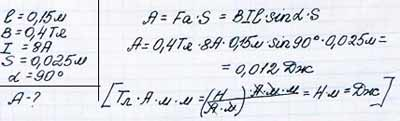 l = 0,15м
B = 0,4Тл
I = 8А
S = 0,025м
α = 90°
A - ?
A = Fa · S = BIl sinα · S
A = 0,4Тл · 8А · 0,15м · sin90° · 0,025м =
= 0,012 Дж
[Тл · А · м · м = (Н / А · м) · А · м · м = Нм = Дж]